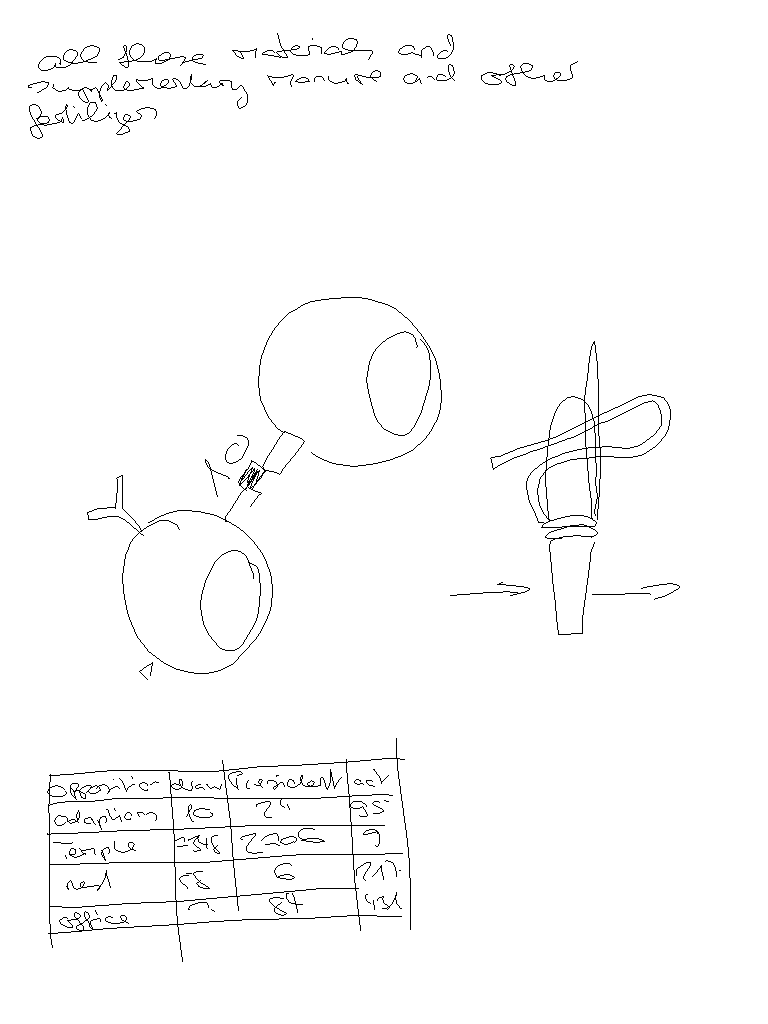 all these materials and
supplementary manure and other
fertilizers
Opposition draw President act
adaptions 10 24 95
Temple 2206 9
red 58 6
office 84